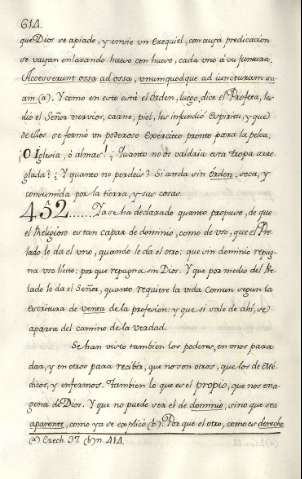 614.
que Dios se apiade, y envie un Ezequiel, con cuya predicacion
se vayan enlazando hueso con hueso, cada uno a su juntura,
Accesserunt ossa ad ossa, unumquodque ad iuncturam su-
am (a). Y como en este entrè el Orden, luego, dice el Profeta, les
dio el Señor nervios, carne, piel, les infundiò Espiritu, y que
de ellos se formò un poderoso Exercito pronto para la pelea,
¡O Iglesia, ò almas! ¿Quanto nos valdria esta tropa arre-
glada? ¿Y quanto no perdeis? Si anda sin orden, seca, y
consumida por la tierra, y sus cosas.
452......Ya se ha declarado quanto propuse, de que
el Religioso es tan capaz de dominio, como de uso, que el Pre-
lado le da el uno, quando le da el otro: que un dominio repug-
na uso licito: por que repugna sin Dios. Y que por medio del Pre-
lado le da el Señor, quanto requiere la vida comun segun la
escritura de venta de la profesion: y que si vale de ahì, se
apara del camino de la verdad.
Se han visto tambien los poderes, en unos para
dar, y en otros para recibir, que no son otros, que los de
dicos, y enfermos. Tambien lo que es el propio, que nos ena-
gena de Dios. Y que no puede ser el de dominio, sino que sea
aparente, como ya se explicò (b). Por que el otro, como es derecho
(a) Ezech. 37. (b) n. 414.